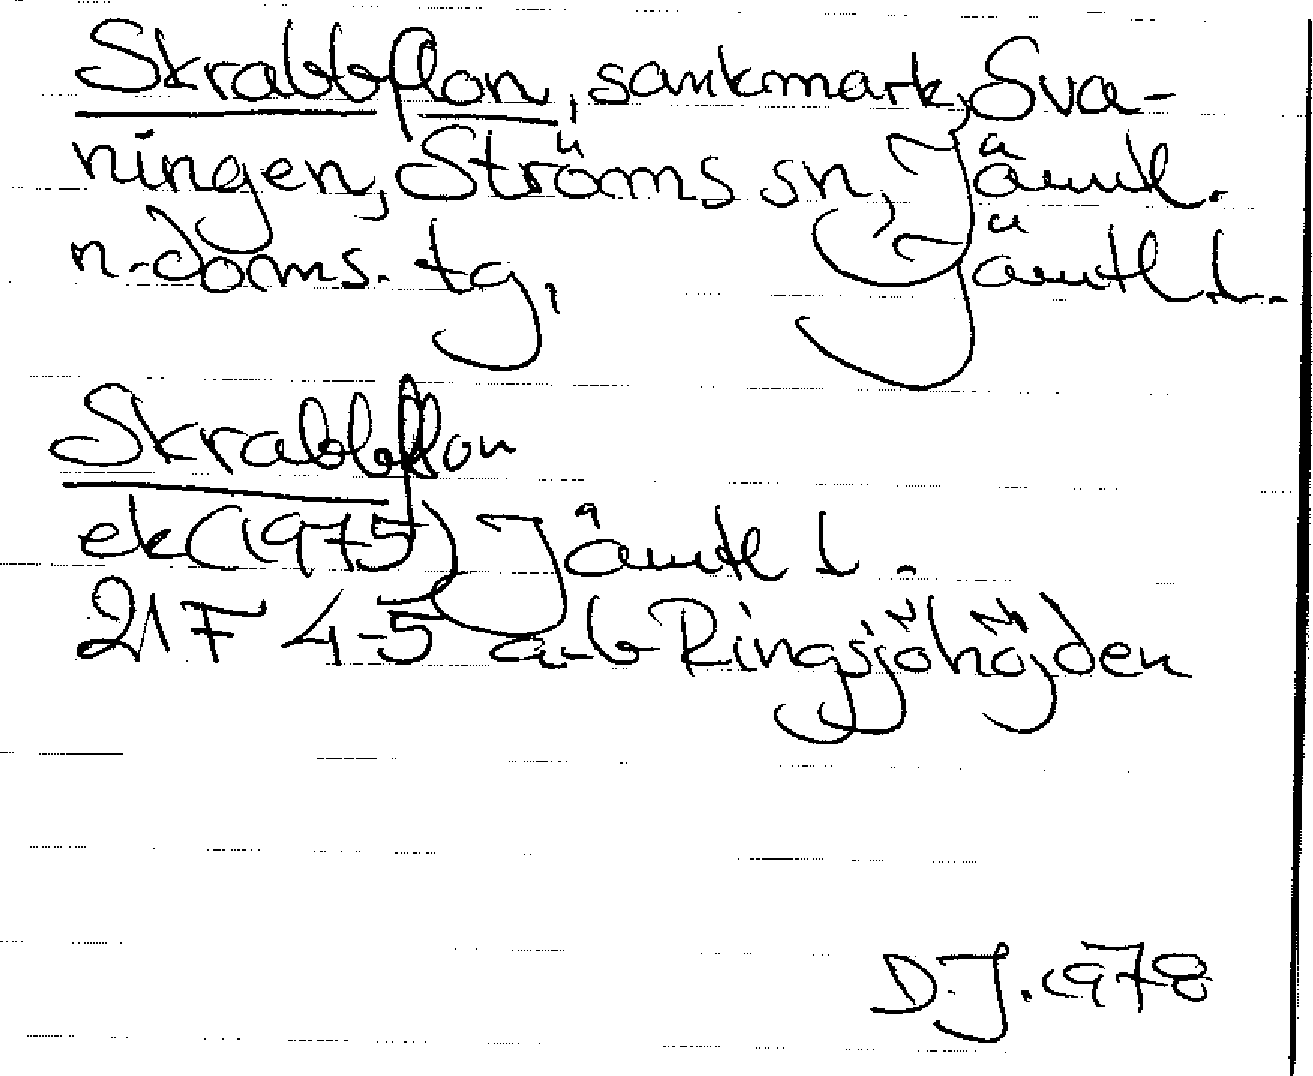 Skrabbflon, sankmark, Sva-
ningen, Ströms sn, Jämtl.
n. doms. tg, Jämtl. l.
Skrabbflon
ek (1975) Jämtl l.
21 F 4-5 a-b Ringsjöhöjden
DJ. 1978